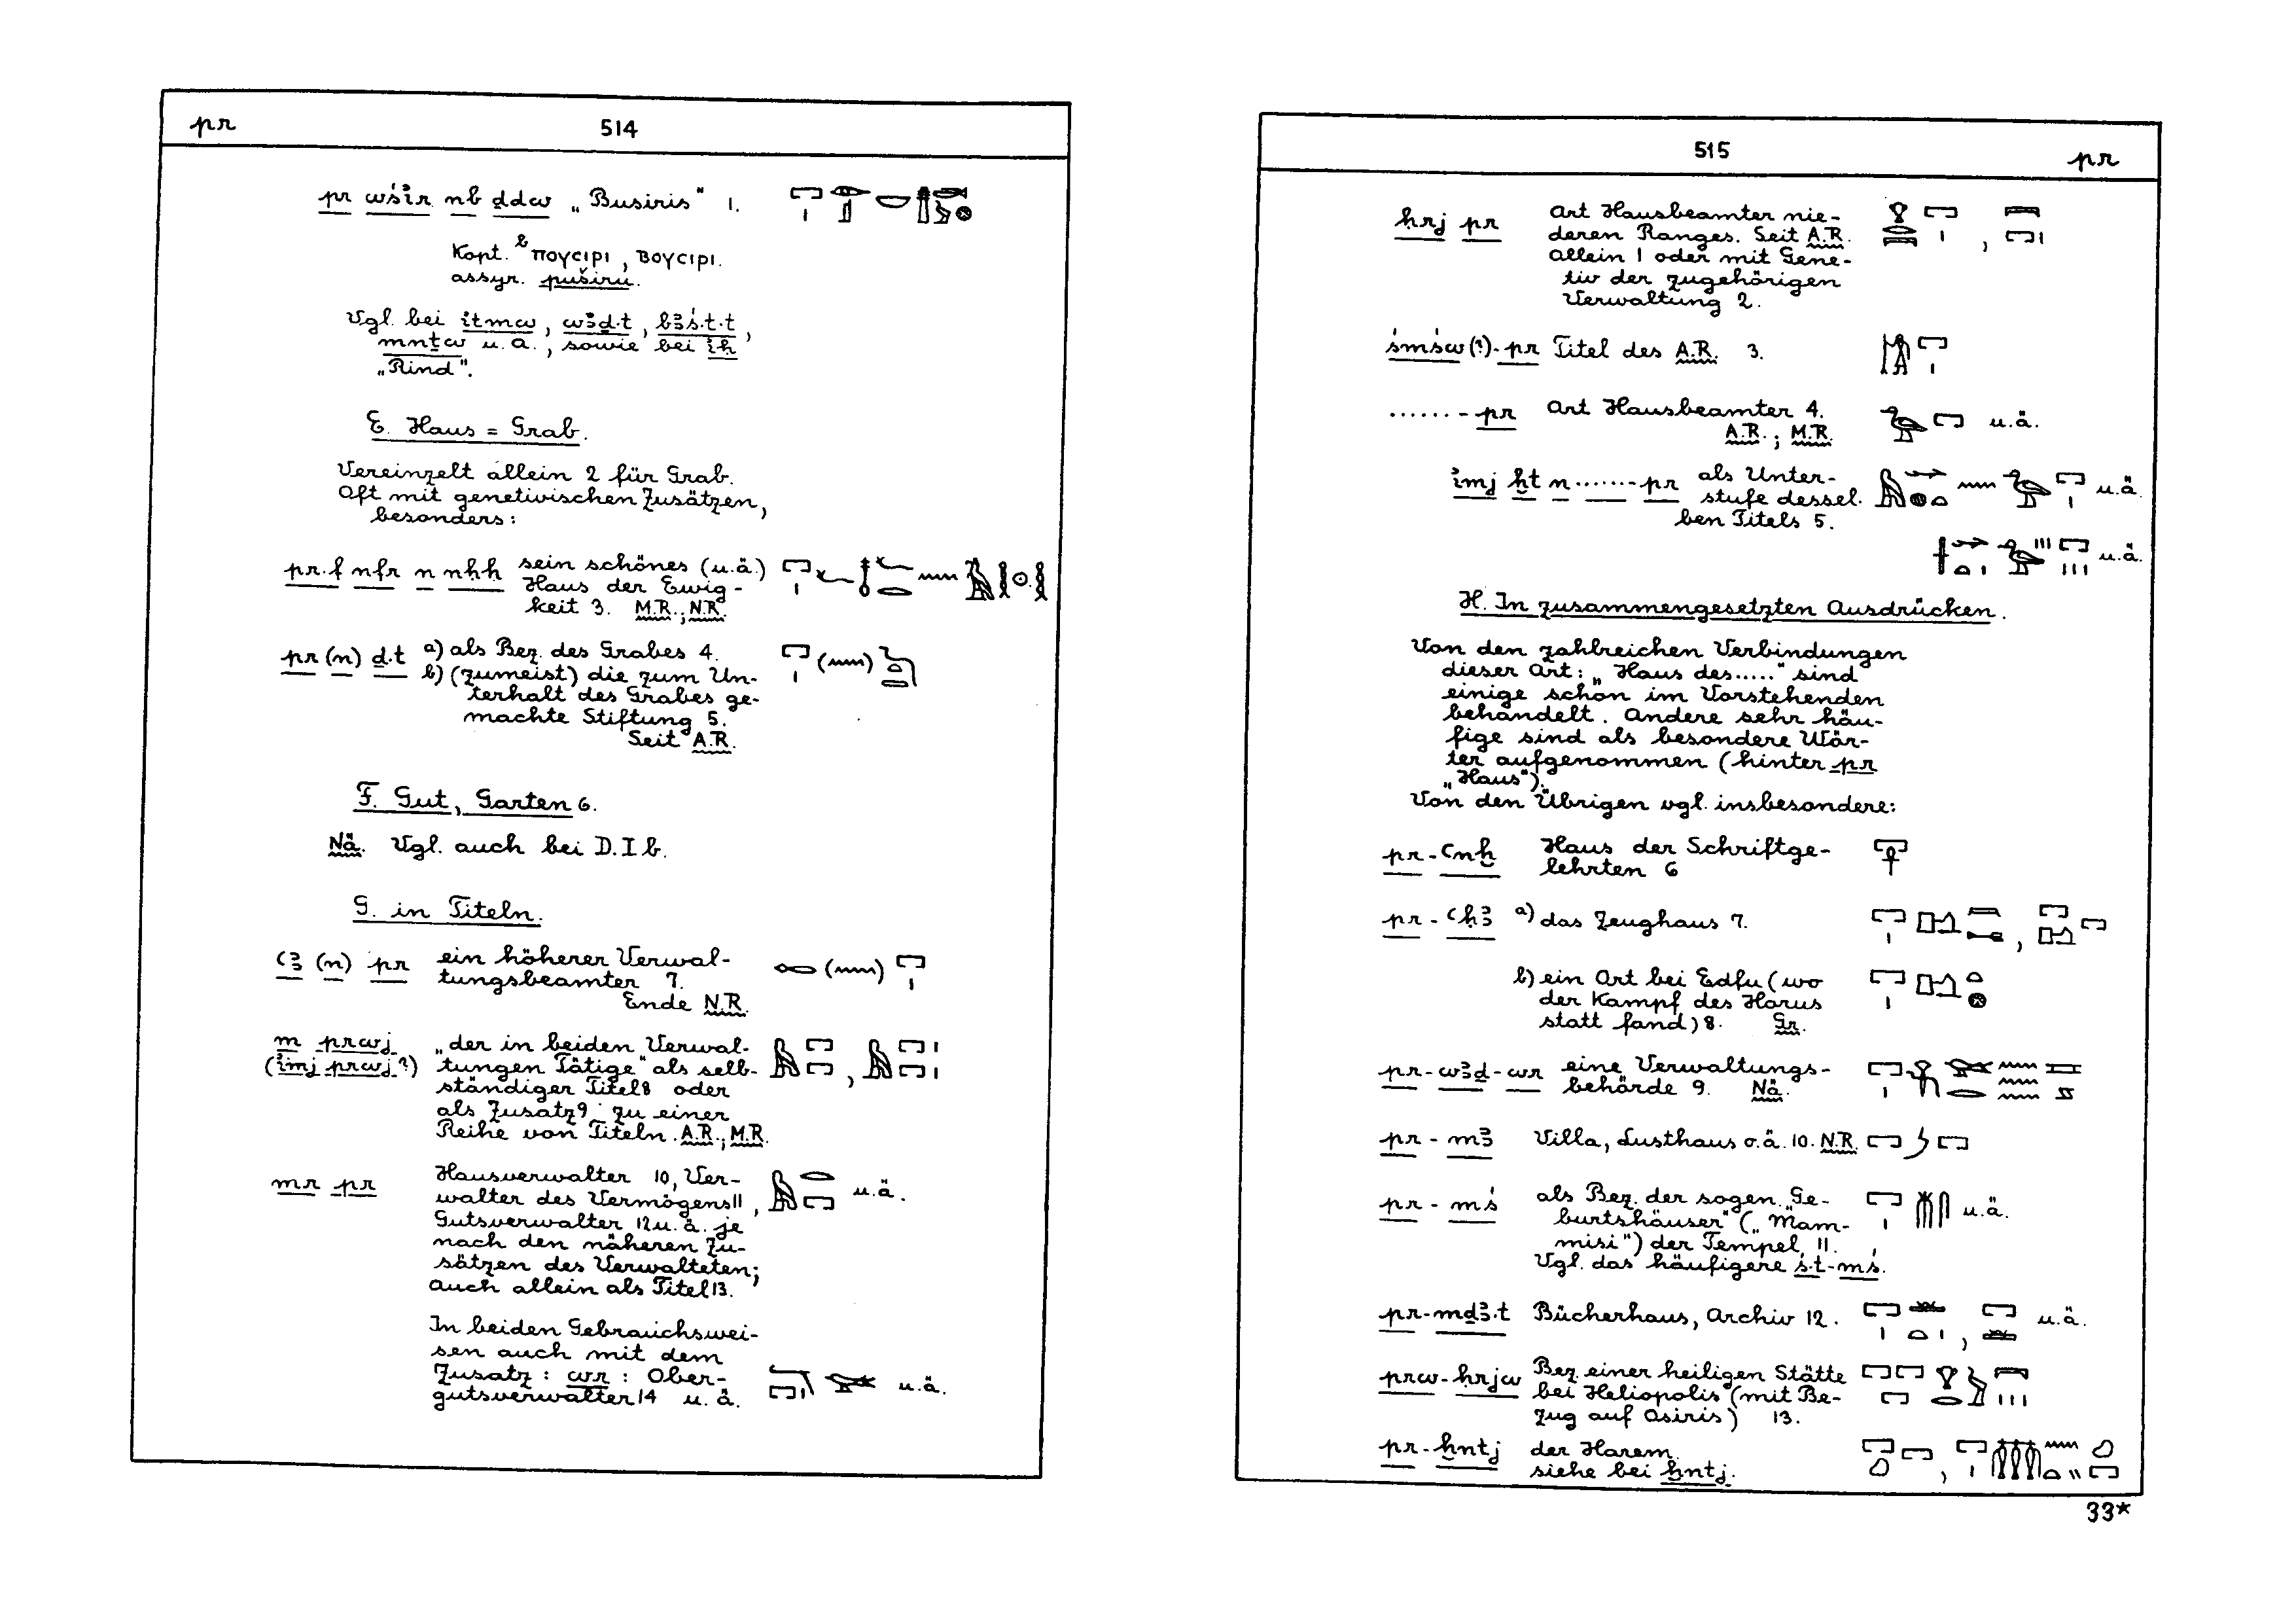 pr
514
pr wśir nb ḏdw „Busiris“ 1.
Kopt. b ⲡⲟⲩⲥⲓⲣⲓ, ⲃⲟⲩⲥⲓⲣⲓ.
assyr. puširu.
Vgl. bei itmw, wꜣḏ.t, bꜣś.t.t,
mnṯw u. a., sowie bei iḥ
„Rind“.
E. Haus = Grab.
Vereinzelt allein 2 für Grab.
Oft mit genetivischen Zusätzen,
besonders:
pr.f nfr n nḥḥ sein schönes (u.ä.)
Haus der Ewig-
keit 3. M.R.; N.R.
pr (n) ḏ.t a) als Bez. des Grabes 4.
b) (zumeist) die zum Un-
terhalt des Grabes ge-
machte Stiftung 5.
Seit A.R.
F. Gut, Garten 6.
Nä. Vgl. auch bei D. I b.
G. in Titeln.
ꜥꜣ (n) pr ein höherer Verwal-
tungsbeamter 7.
Ende N.R.
m prwj „der in beiden Verwal-
(imj prwj?) tungen Tätige“ als selb-
ständiger Titel 8 oder
als Zusatz 9 zu einer
Reihe von Titeln. A.R.; M.R.
mr pr Hausverwalter 10, Ver- u.ä.
walter des Vermögens 11,
Gutsverwalter 12 u. ä. je
nach den näheren Zu-
sätzen des Verwalteten;
auch allein als Titel 13.
In beiden Gebrauchswei-
sen auch mit dem
Zusatz: wr: Ober- u.ä.
gutsverwalter 14 u. ä.
515
pr
ḥrj pr Art Hausbeamter nie-
deren Ranges. Seit A.R.
allein 1 oder mit Gene-
tiv der zugehörigen
Verwaltung 2.
śmśw (?)-pr Titel des A.R. 3.
.......-pr Art Hausbeamter 4. u.ä.
A.R.; M.R.
imj ḫt n.......-pr als Unter-
stufe dessel- u.ä.
ben Titels 5.
u.ä.
H. In zusammengesetzten Ausdrücken.
Von den zahlreichen Verbindungen
dieser Art: „Haus des.....“ sind
einige schon im Vorstehenden
behandelt. Andere sehr häu-
fige sind als besondere Wör-
ter aufgenommen (hinter pr
„Haus“).
Von den Übrigen vgl. insbesondere:
pr-ꜥnḫ Haus der Schriftge-
lehrten 6
pr-ꜥḥꜣ a) das Zeughaus 7.
b) ein Ort bei Edfu (wo
der Kampf des Horus
statt fand) 8. Gr.
pr-wꜣḏ-wr eine Verwaltungs-
behörde 9. Nä.
pr-mꜣ Villa, Lusthaus o.ä. 10. N.R.
pr-mś als Bez. der sogen. „Ge-
burtshäuser“ („Mam- u.ä.
misi“) der Tempel 11.
Vgl. das häufigere ś.t-mś.
pr-mḏꜣ.t Bücherhaus, Archiv 12. u.ä.
prw-ḥrjw Bez. einer heiligen Stätte
bei Heliopolis (mit Be-
zug auf Osiris) 13.
pr-ḫntj der Harem.
siehe bei ḫntj.
33*